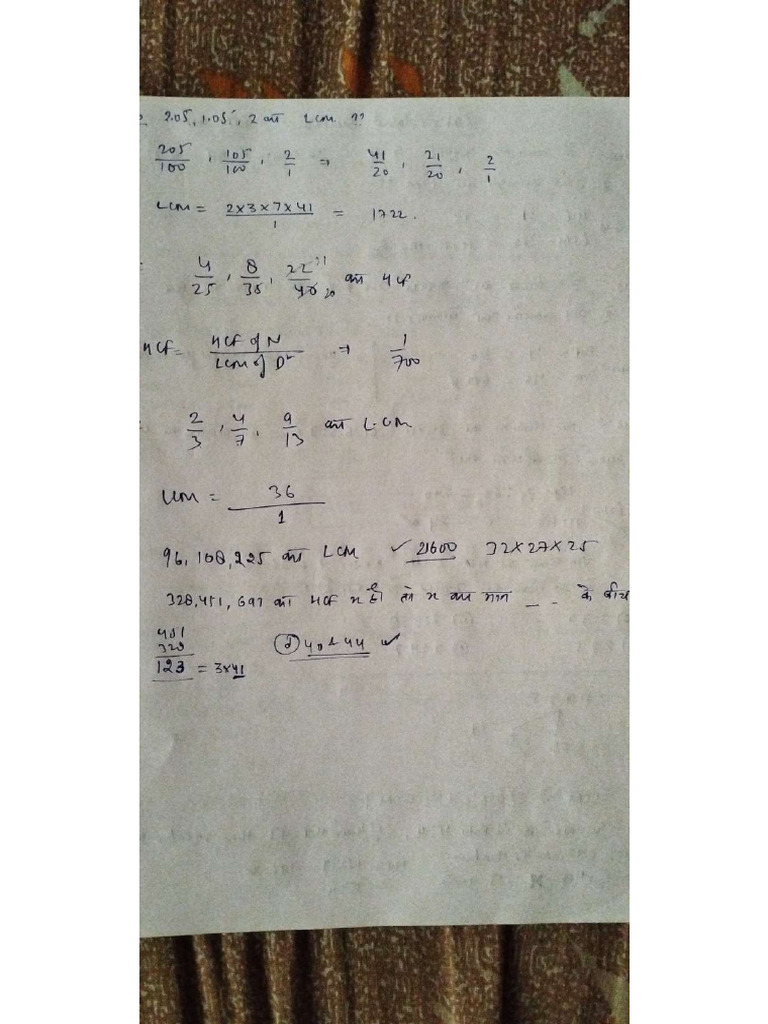 2.05, 1.05, 2 का LCM ??
205/100, 105/100, 2/1 ⇒ 41/20, 21/20, 2/1
LCM = 2×3×7×41/1 = 1722.
4/25, 8/35, 22/40 11 20 का HCF
HCF = HCF of N/LCM of Dr ⇒ 1/700
2/3, 4/7, 9/13 का L.CM
LCM = 36/1
96, 108, 225 का LCM ✓ 21600 32×27×25
328, 451, 697 का HCF x हो तो x का मान _ _ के बीच
451
328
123 = 3×41
(d) 40 & 44 ✓